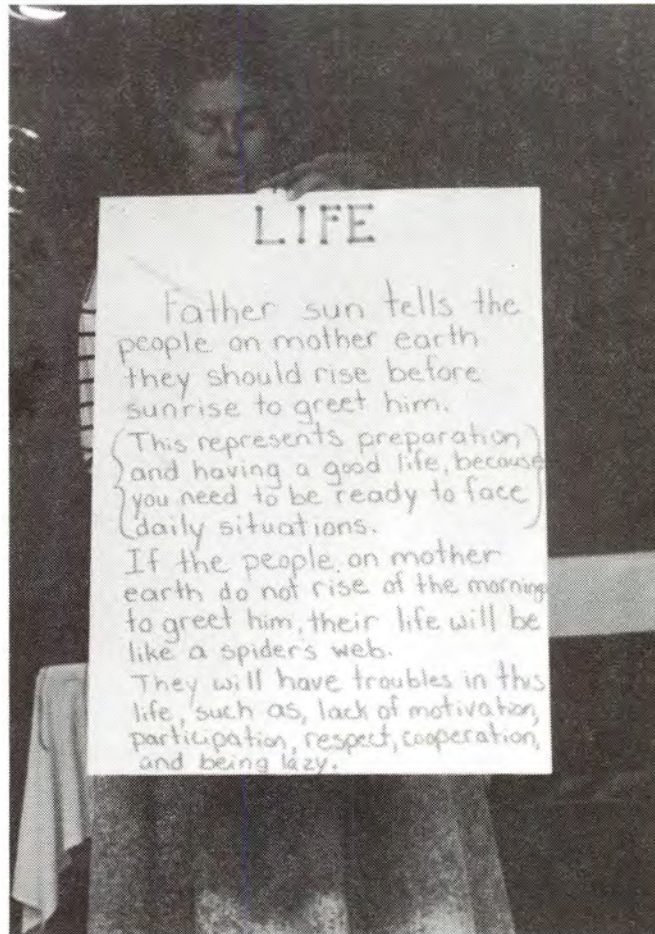 LIFE
Father sun tells the
people on mother earth
they should rise before
sunrise to greet him.
(This represents preparation
and having a good life, because
you need to be ready to face
daily situations.)
If the people on mother
earth do not rise of the morning
to greet him, their life will be
like a spider's web.
They will have troubles in this
life, such as, lack of motivation,
participation, respect, cooperation,
and being lazy.